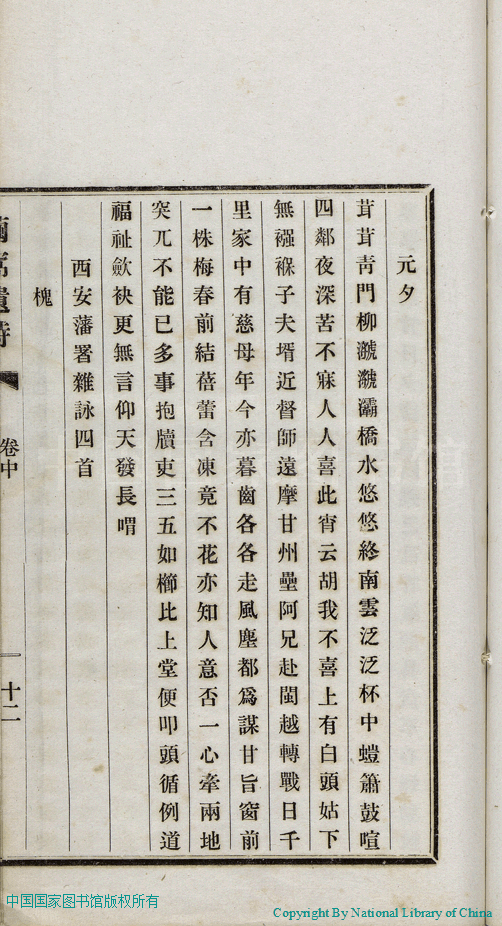 元夕
茸茸靑門柳㶑㶑灞橋水悠悠終南雲泛泛杯中螘簫鼓喧
四鄰夜深苦不寐人人喜此宵云胡我不喜上有白頭姑下
無襁褓子夫壻近督師遠摩甘州壘阿兄赴閩越轉戰日千
里家中有慈母年今亦暮齒各各走風塵都爲謀甘旨窗前
一株梅春前結蓓蕾含凍竟不花亦知人意否一心牽兩地
突兀不能已多事抱牘吏三五如櫛比上堂便叩頭循例道
福祉斂袂更無言仰天發長喟
西安藩署雜詠四首
槐
遺詩
卷中
十二
中国国家图书馆版权所有
Copyright By National Library of China